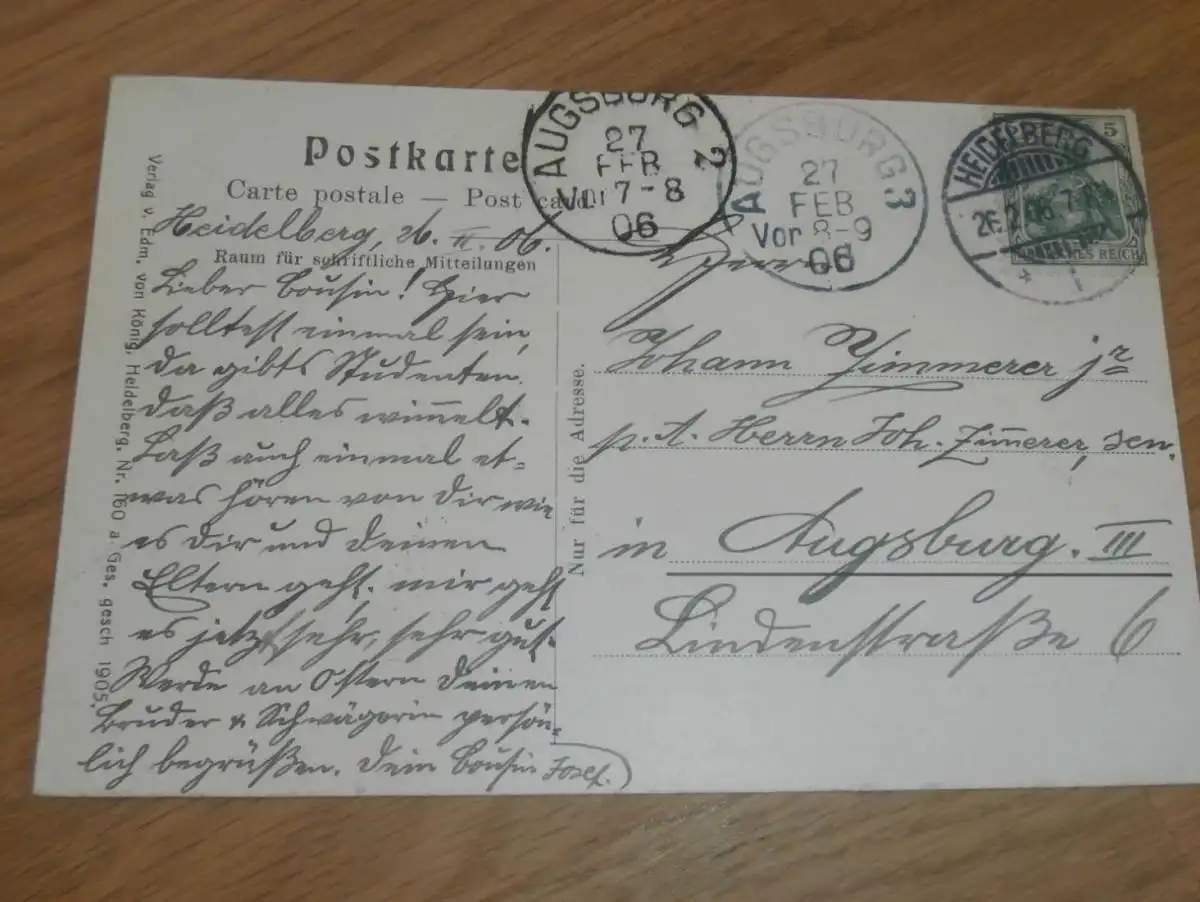 Postkarte
Carte postale — Post card
Heidelberg, 26. II. 06.
Raum für schriftliche Mitteilungen
Lieber Cousin! Hier
solltest einmal sein,
da gibts Studenten.
daß alles wim̄elt.
Laß auch einmal et-
was hören von Dir wie
es Dir und Deinen
Eltern geht. mir geht
es jetzt sehr, sehr gut.
Werde an Ostern Deinen
Bruder & Schwägerin persön-
lich begrüßen. Dein Cousin Josef.
Verlag v. Edm. von König, Heidelberg, Nr. 160 a. Ges. gesch 1905.
Nur für die Adresse.
AUGSBURG 2
27
FEB
Vor 7-8
06
AUGSBURG 3
27
FEB
Vor 8-9
06
HEIDELBERG
5
REICH
Herrn
Johann Zimmerer jr
p. A. Herrn Joh. Zim̄erer, sen.
in Augsburg. III
Lindenstraße 6